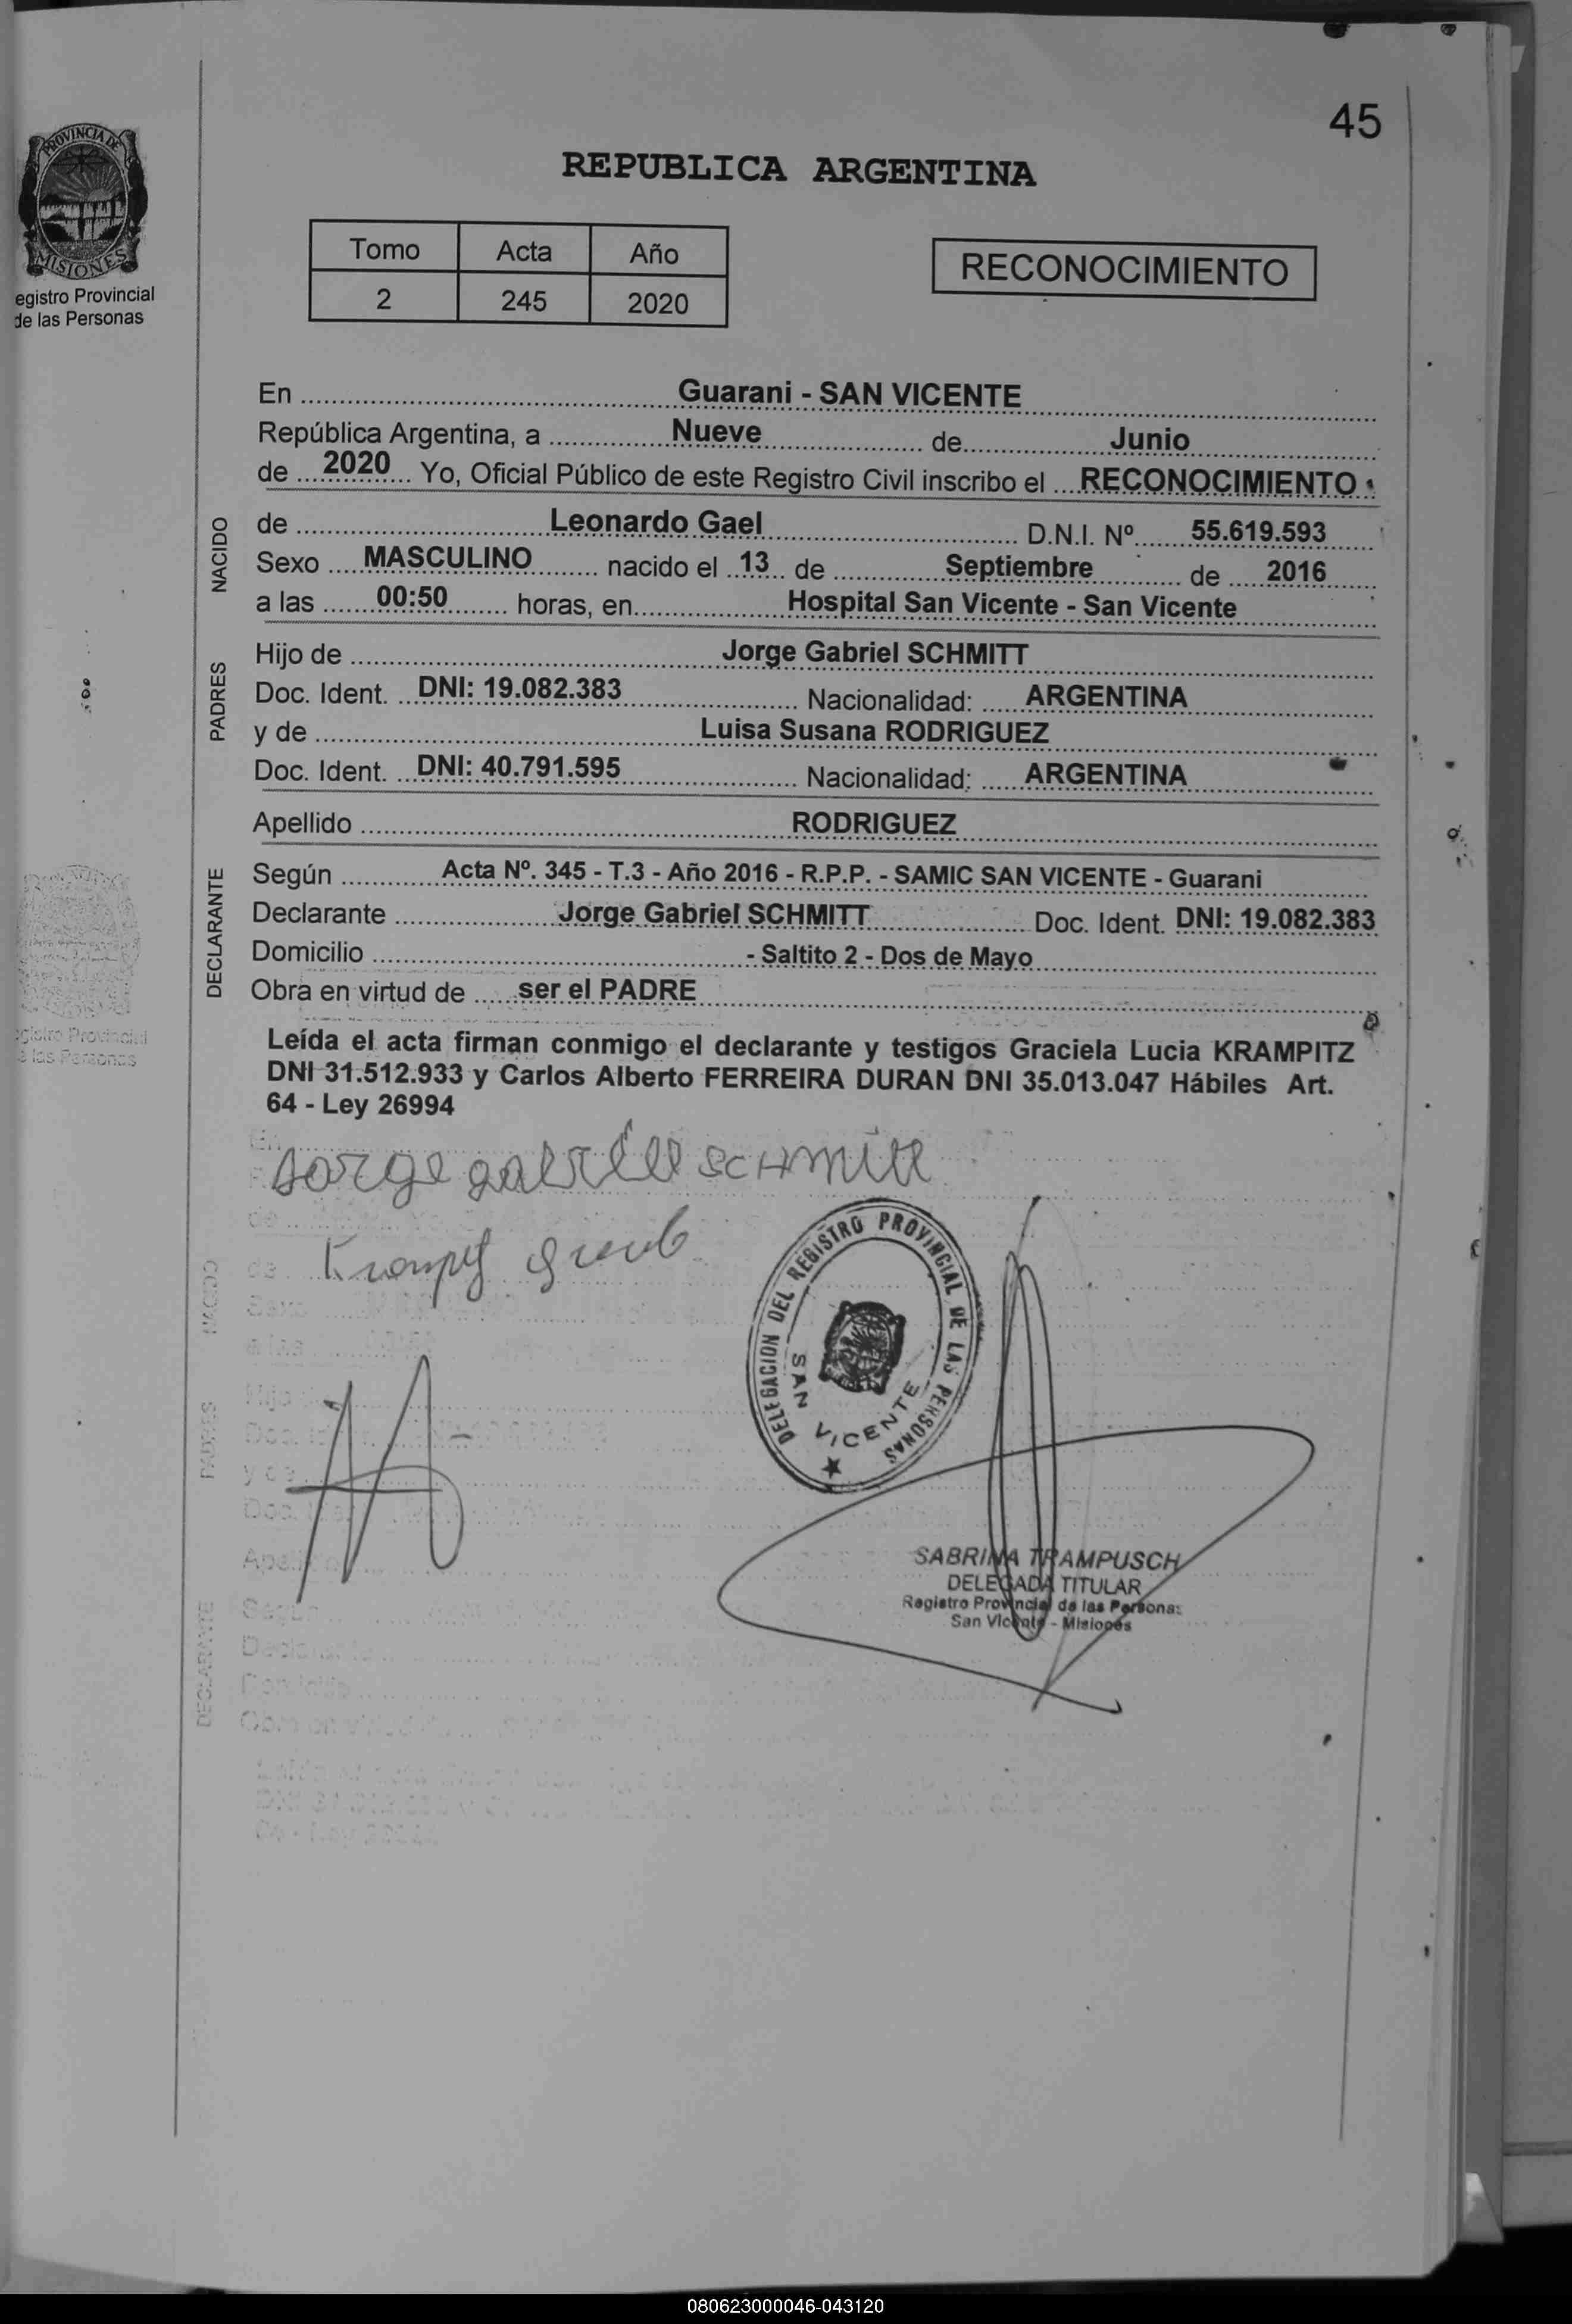 45
PROVINCIA DE
MISIONES
egistro Provincial
de las Personas
REPUBLICA ARGENTINA
Tomo Acta Año
2 245 2020
RECONOCIMIENTO
En Guarani - SAN VICENTE
República Argentina, a Nueve de Junio
de 2020 Yo, Oficial Público de este Registro Civil inscribo el RECONOCIMIENTO
NACIDO
de Leonardo Gael D.N.I. Nº 55.619.593
Sexo MASCULINO nacido el 13 de Septiembre de 2016
a las 00:50 horas, en Hospital San Vicente - San Vicente
PADRES
Hijo de Jorge Gabriel SCHMITT
Doc. Ident. DNI: 19.082.383 Nacionalidad: ARGENTINA
y de Luisa Susana RODRIGUEZ
Doc. Ident. DNI: 40.791.595 Nacionalidad: ARGENTINA
Apellido RODRIGUEZ
DECLARANTE
Según Acta Nº. 345 - T.3 - Año 2016 - R.P.P. - SAMIC SAN VICENTE - Guarani
Declarante Jorge Gabriel SCHMITT Doc. Ident. DNI: 19.082.383
Domicilio - Saltito 2 - Dos de Mayo
Obra en virtud de ser el PADRE
Leída el acta firman conmigo el declarante y testigos Graciela Lucia KRAMPITZ
DNI 31.512.933 y Carlos Alberto FERREIRA DURAN DNI 35.013.047 Hábiles Art.
64 - Ley 26994
Jorge gabriel SCHmitt
DELEGACION DEL REGISTRO PROVINCIAL DE LAS PERSONAS
SAN VICENTE
SABRINA TRAMPUSCH
DELEGADA TITULAR
Registro Provincial de las Personas
San Vicente - Misiones
080623000046-043120